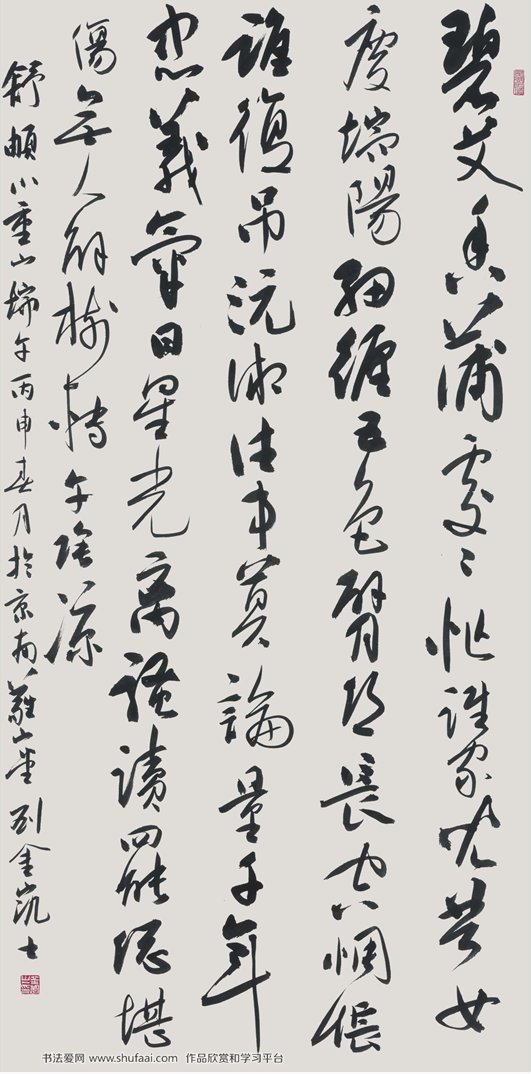 碧艾香蒲處〻忙誰家兒共女
慶端陽細纏五色臂絲長空惆悵
誰復吊沅湘往事莫論量千年
忠義氣日星光離騷讀罷總堪
傷無人解樹轉午陰涼
舒頔小重山端午丙申春月於京南刘金凯
书法爱网 www.shufaai.com 作品欣赏和学习平台